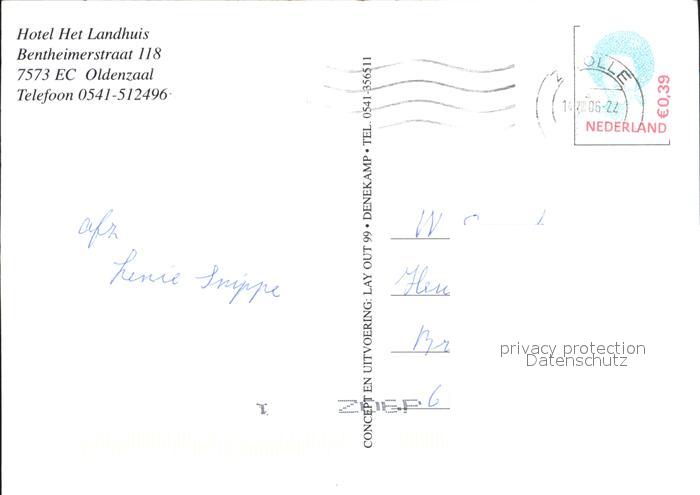 Hotel Het Landhuis
Bentheimerstraat 118
7573 EC Oldenzaal
Telefoon 0541-512496
CONCEPT EN UITVOERING: LAY OUT 99 • DENEKAMP • TEL. 0541-356511
ZWOLLE
NEDERLAND
€0,39
afz
Henie Snippe
W
Heu
Br
6
privacy protection
Datenschutz